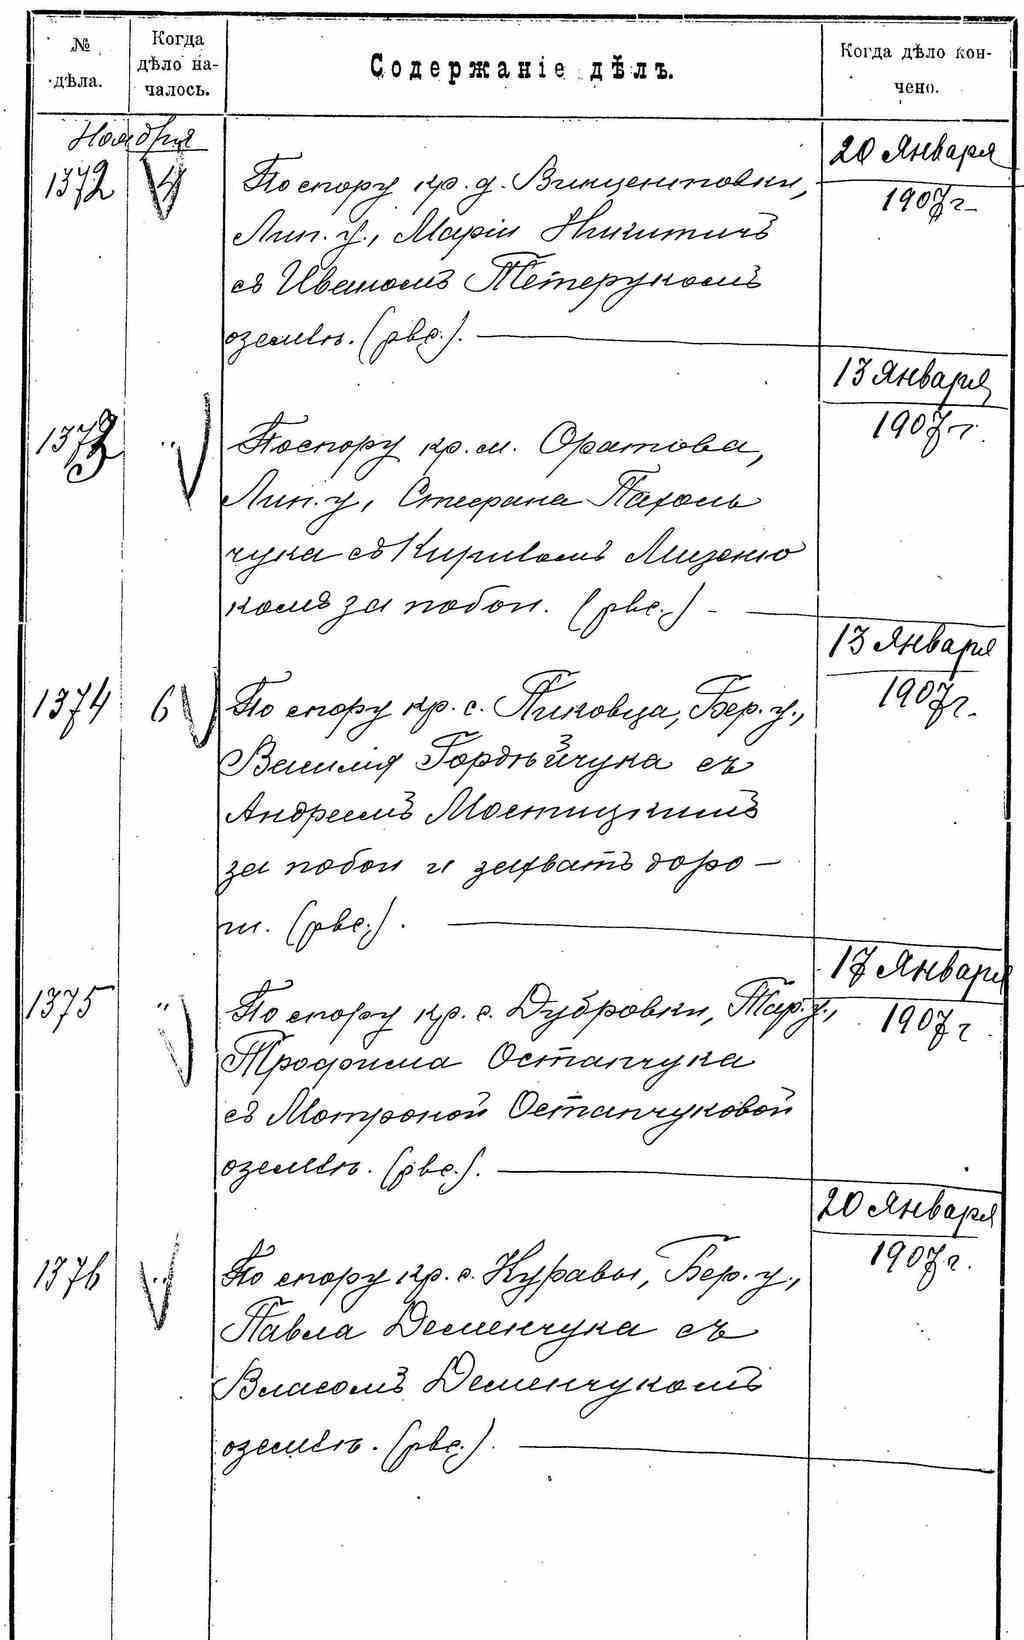 № дѣла.
Когда дѣло на-
чалось.
Содержаніе дѣлъ.
Когда дѣло кон-
чено.
Ноября
20 Января
1907 г.
1372 4 По спору кр. д. Винцентовки,
Лип. у., Маріи Никитичъ
съ Иваномъ Тетерукомъ
о землѣ. (рвс.).
13 Января
1907 г.
1373 " По спору кр. м. Оратова,
Лип. у., Стефана Пахоль
чука съ Кириломъ
комъ за побои. (рвс.)
13 Января
1907 г.
1374 6 По спору кр. с. Пиковца, Бер. у.,
Василія Гордѣйчука съ
Андреемъ Мостицкимъ
за побои и захватъ доро-
ги. (рвс.).
17 Января
1907 г
1375 " По спору кр. с. Дубровки, Тар. у.,
Трофима Остапчука
съ Мотроной Остапчуковой
о землѣ. (рвс.).
20 Января
1907 г.
1376 " По спору кр. с. Журавы, Бер. у.,
Павла Деменчука съ
Власомъ Деменчукомъ
о землѣ. (рвс.).